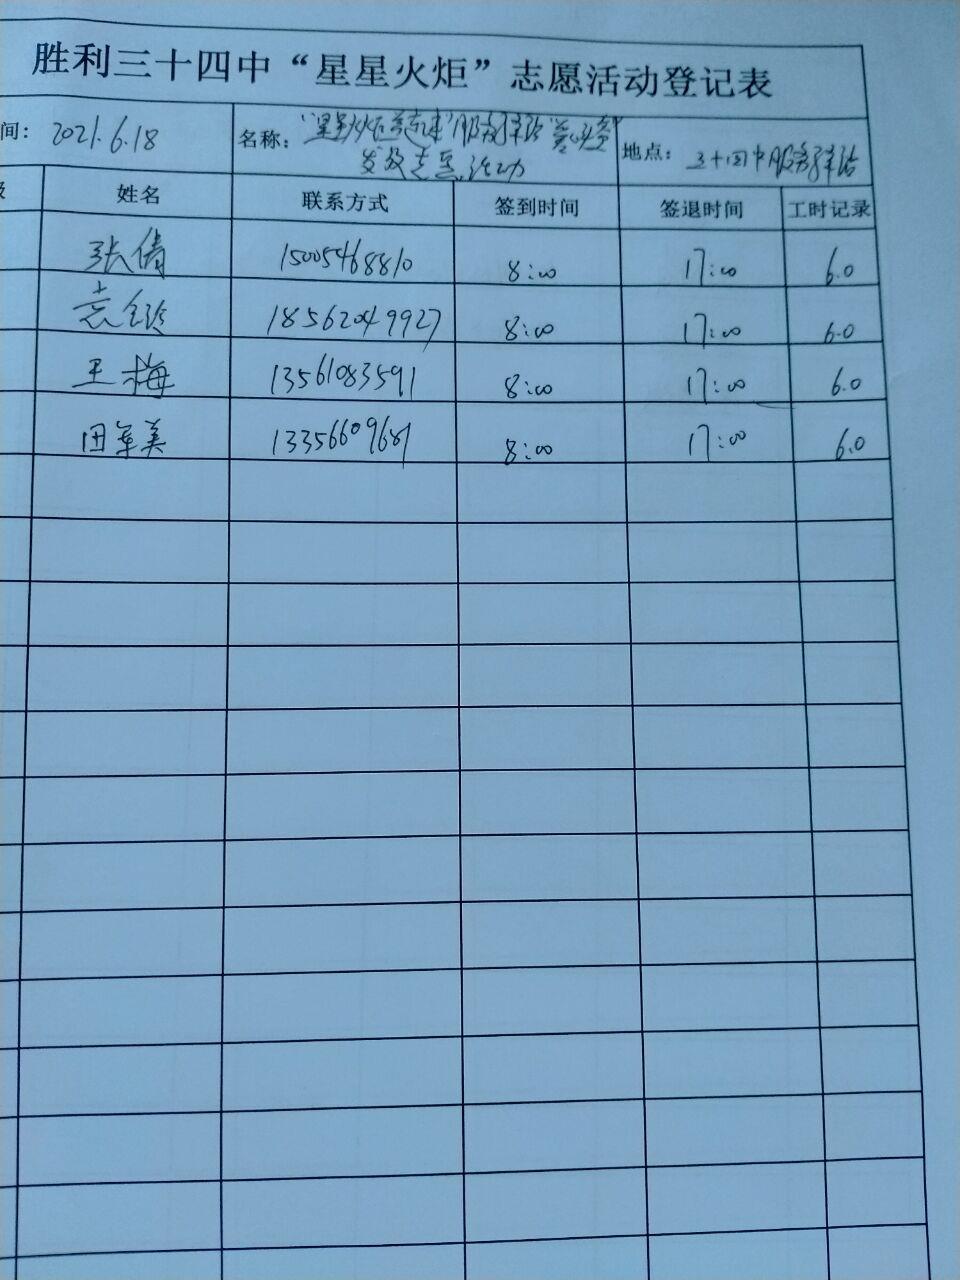 胜利三十四中“星星火炬”志愿活动登记表
间： 2021.6.18 名称： “星星火炬 服务驿站 地点： 三十四中服务驿站
发放志愿活动
级 姓名 联系方式 签到时间 签退时间 工时记录
张倩 15005468810 8:00 17:00 6.0
袁全玲 18562049927 8:00 17:00 6.0
王梅 13561083591 8:00 17:00 6.0
田军美 13356609681 8:00 17:00 6.0